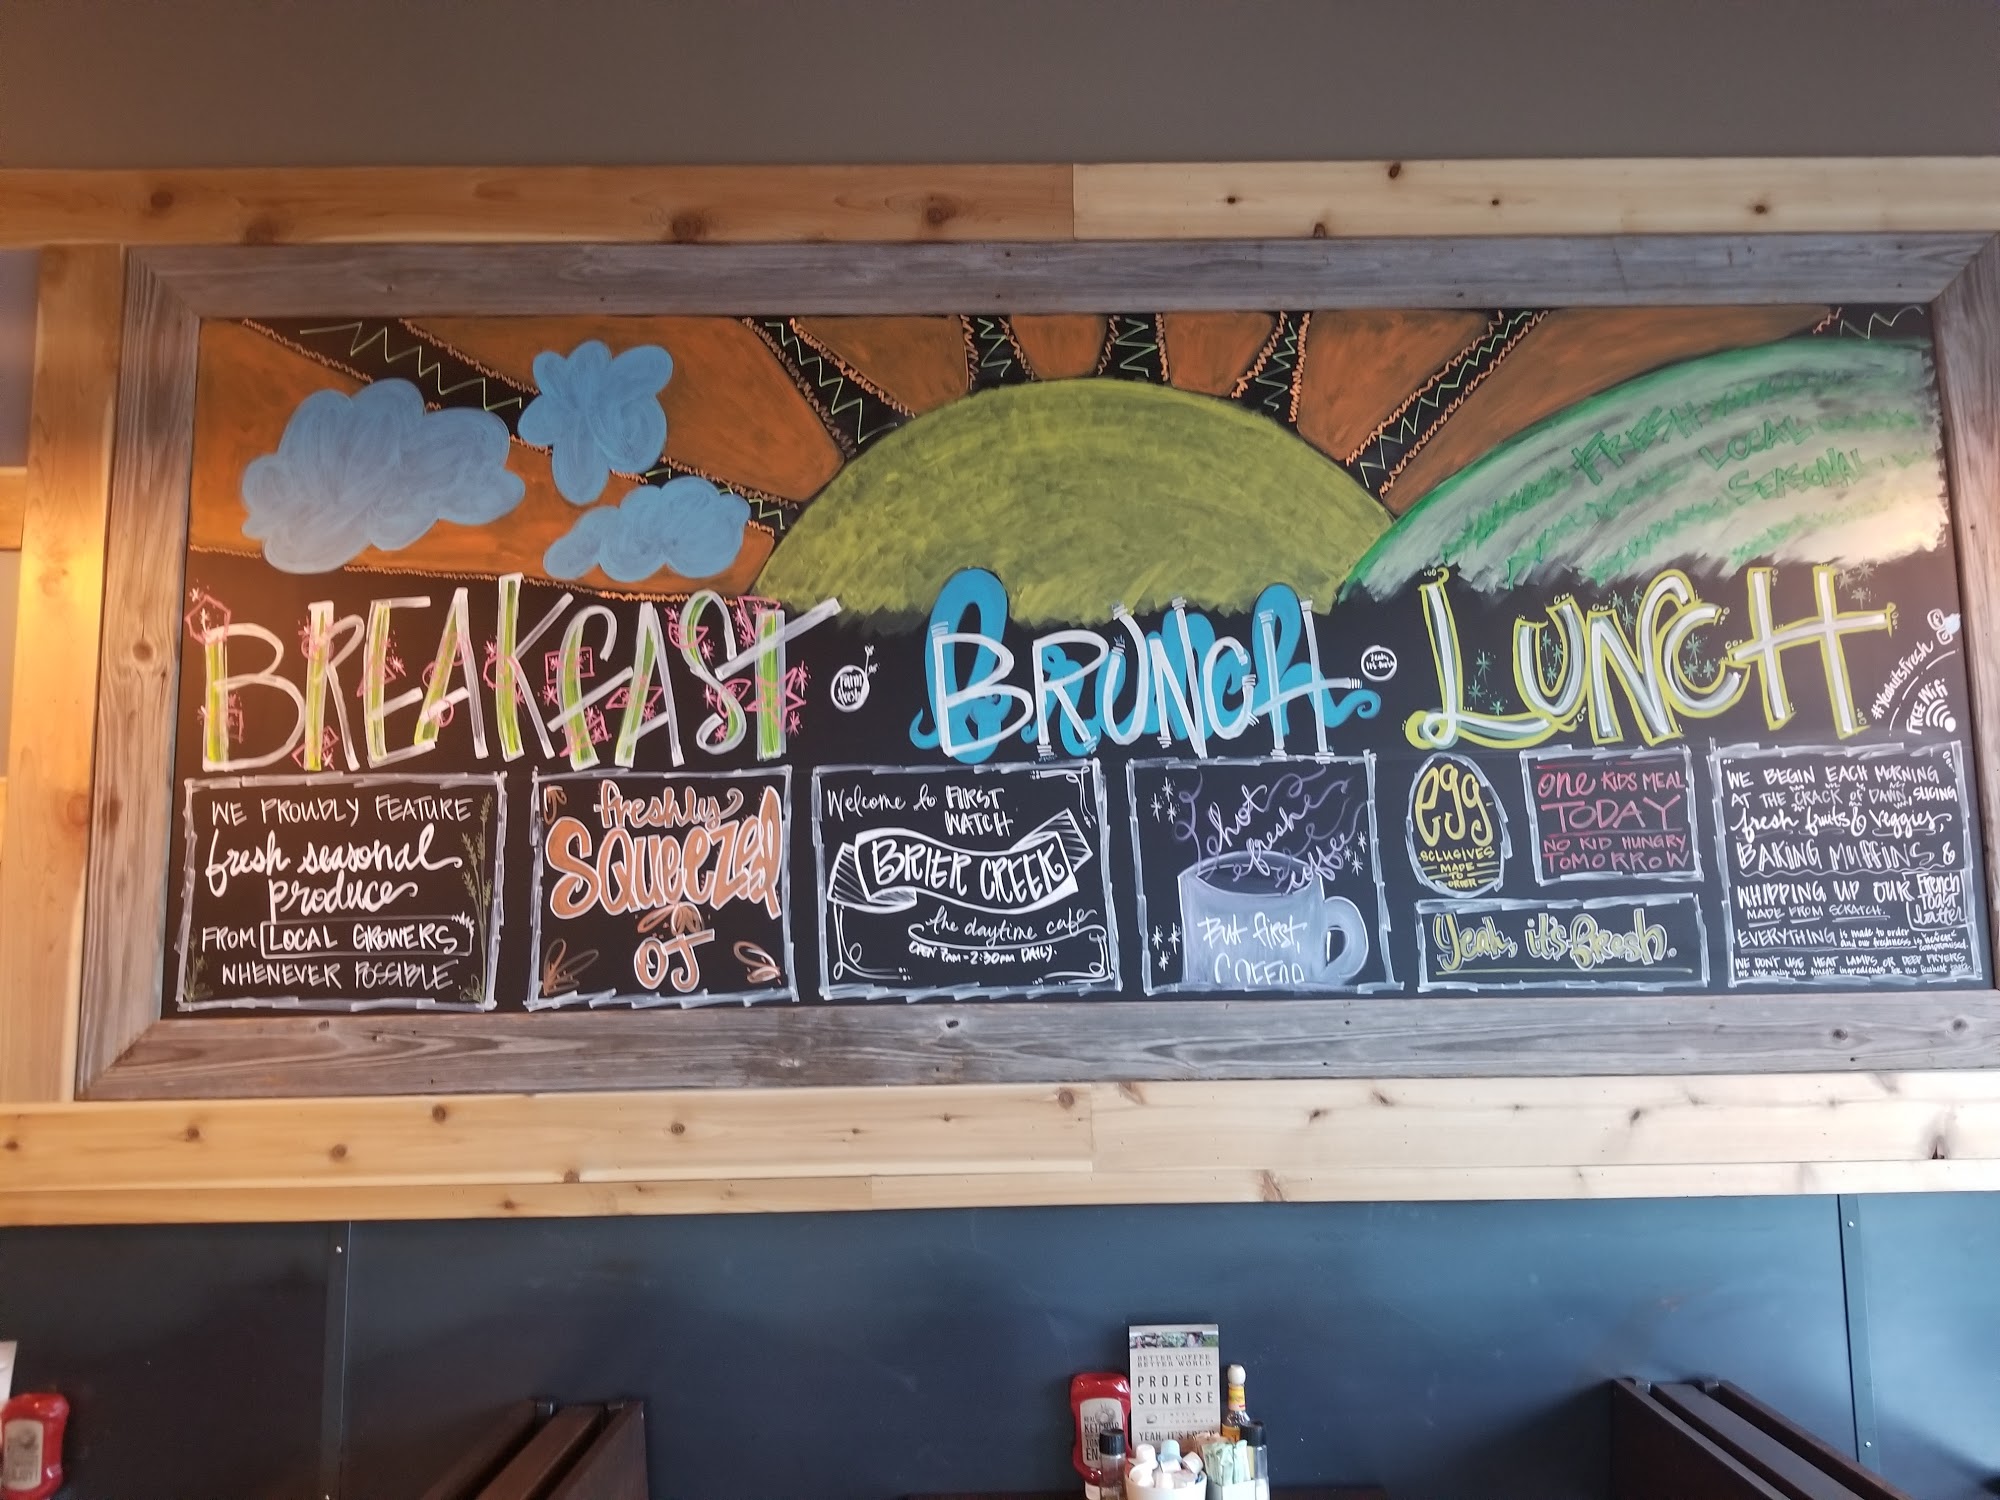 FRESH
LOCAL
SEASONAL
BREAKFAST
farm
fresh
BRUNCH
Brunch
yeah,
it's fresh
LUNCH
#YeahItsFresh
FREE Wifi
WE PROUDLY FEATURE
fresh seasonal
produce
FROM LOCAL GROWERS
WHENEVER POSSIBLE.
freshly
SQUEEZED
OJ
Welcome to FIRST
WATCH
BRIER CREEK
the daytime cafe
OPEN 7AM-2:30PM DAILY.
hot
fresh
coffee
But first,
COFFEE
egg
SCLUSIVES
MADE
TO
ORDER
ONE KIDS MEAL
TODAY
NO KID HUNGRY
TOMORROW
Yeah, it's fresh.
WE BEGIN EACH MORNING
AT THE CRACK OF DAWN SLICING
fresh fruits & veggies,
BAKING MUFFINS &
WHIPPING UP OUR French
Toast
batter
MADE FROM SCRATCH.
EVERYTHING is made to order
and our freshness is never
compromised.
WE DON'T USE HEAT LAMPS OR DEEP FRYERS
we use only the finest ingredients for the freshest taste.
BETTER COFFEE
BETTER WORLD.
PROJECT
SUNRISE
YEAH, IT'S FRESH
KETCHUP